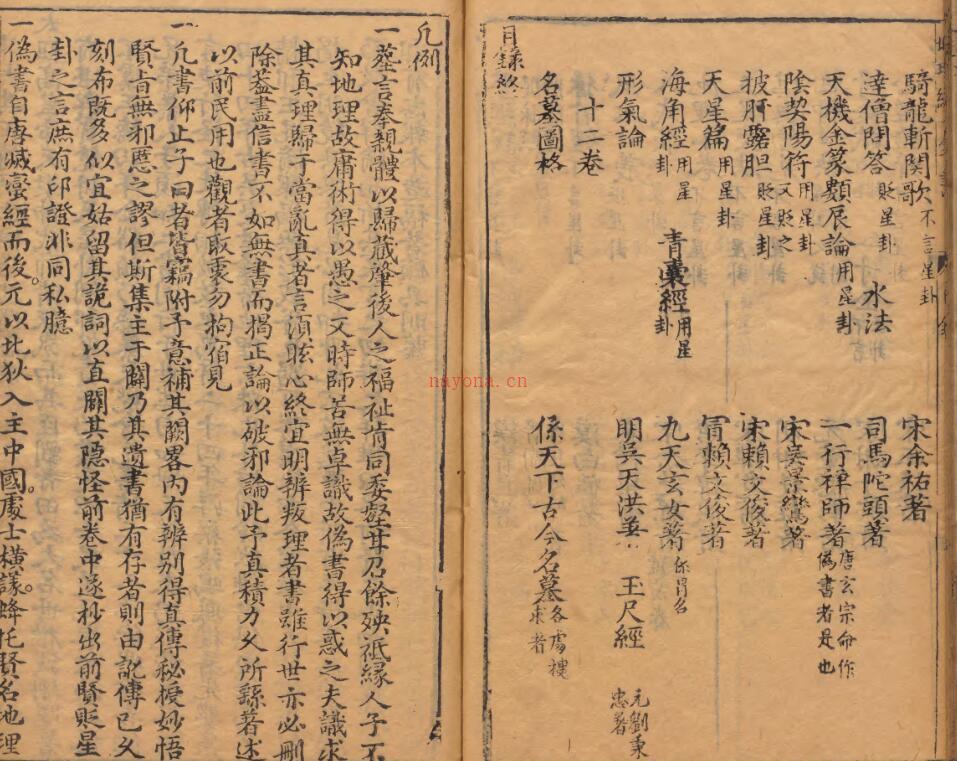 騎龍斬関歌 不言星卦 宋余祐著
達僧問答 貶星卦 水法 司馬陀頭著
天機金篆 數展論 用星卦 一行禅師著 唐玄宗命作偽書者是也
陰契陽符 用星卦又貶之 宋吳景鸞著
披肝露胆 貶星卦 宋賴文俊著
天星篇 用星卦 冐賴文俊著
海角經 用星卦 青囊經 用星卦 九天玄女著 係冐名
形氣論 明吳天洪著 玉尺經 元劉秉忠著
十二卷
名墓圖格 係天下古今名墓 各處摟求者
目錄終
凡例
一塟言奉親體以歸藏肇後人之福祉肯同委壑茸召餘殃祗縁人子不
知地理故庸術得以愚之又時師苦無卓識故偽書得以惑之夫識求
其真理歸于當亂真者言須眩心終宜明辨叛理者書雖行世亦必刪
除葢盡信書不如無書而揭正論以破邪論此予真積力久所繇著述
以前民用也觀者取裏勿拘宿見
一凡書仰止子曰者皆竊附予意補其闕畧內有辨别得真傳秘授妙悟
賢肯無邪慝之謬但斯集主于闢乃其遺書猶有存者則由訛傳已久
刻布既多似宜姑留其詭詞以直闢其隐怪前卷中遂抄出前賢貶星
卦之言庶有印證非同私臆
一偽書自唐滅蠻經而後。元以北狄入主中國。處士横議。蜂托賢名地理